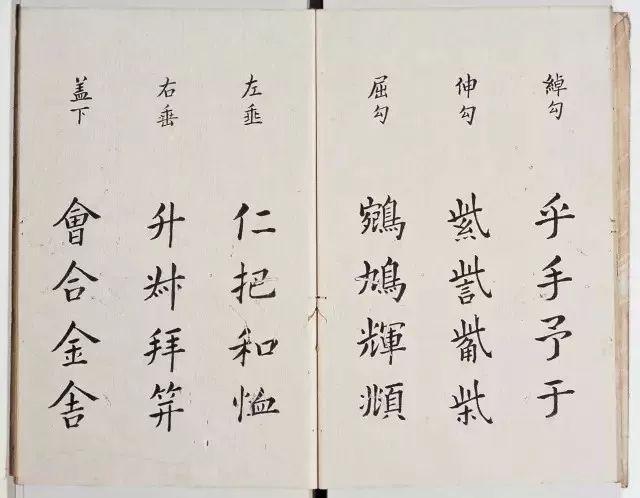 綽勾
乎手予于
伸勾
紫訾觜柴
屈勾
鵷鳩輝頫
左垂
仁把和恤
右垂
升拜笄
盖下
會合金舍